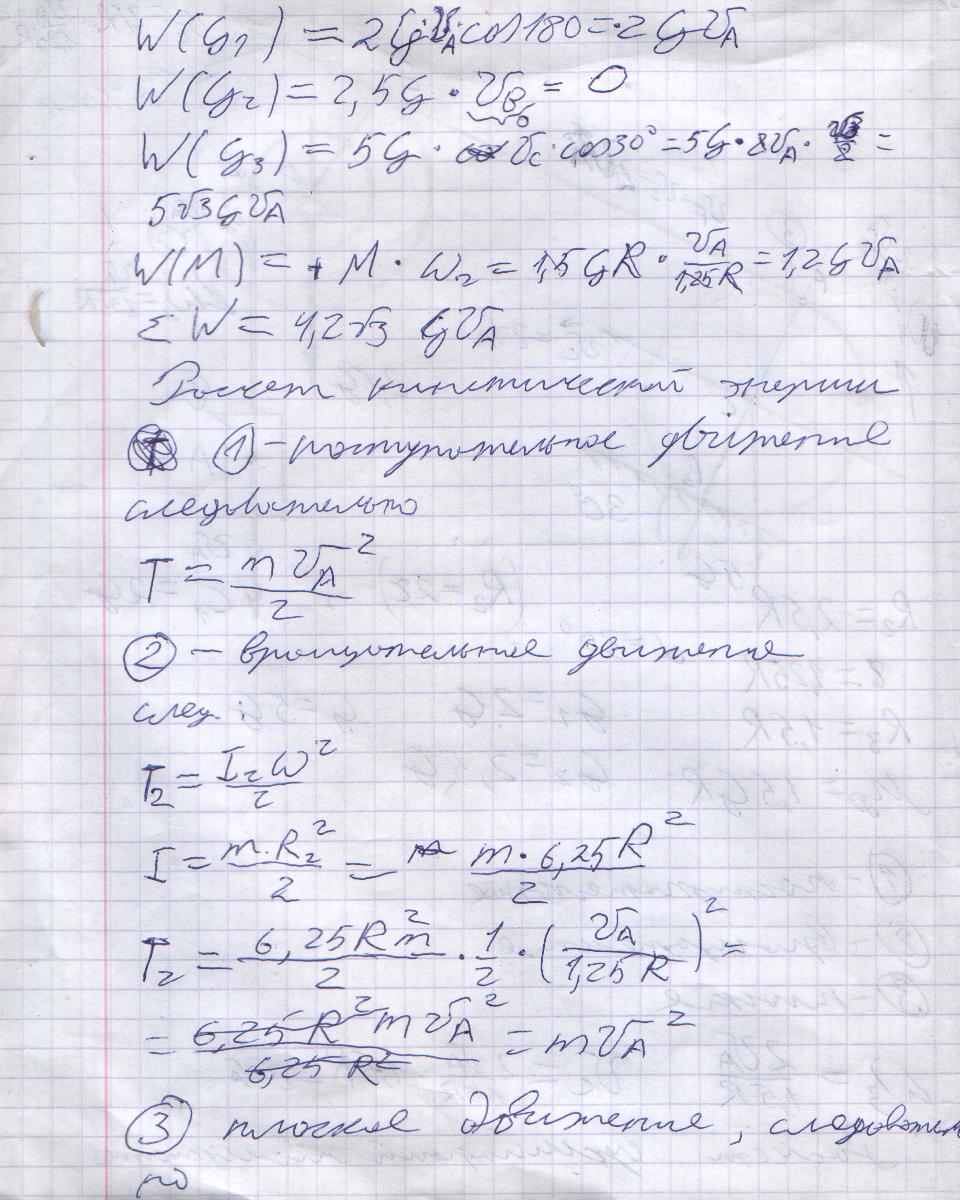 W(G₁) = 2G·V_A cos180 = -2GV_A
W(G₂) = 2,5G · V_B = 0
0
W(G₃) = 5G · V_C · cos30° = 5G · 2V_A · √3/2 =
5√3GV_A
W(M) = + M · ω₂ = 1,5GR · V_A/1,25R = 1,2GV_A
ΣW = 4,2√3 GV_A
Расчет кинетической энергии
① – поступательное движение
следовательно
T = mV_A²/2
② – вращательное движение
след.
T₂ = I₂ω²/2
I = m·R₂²/2 = m·6,25R²/2
T₂ = 6,25R²m/2 · 1/2 · (V_A/1,25R)² =
= 6,25R²mV_A²/6,25R² = mV_A²
③ плоское движение, следователь
но